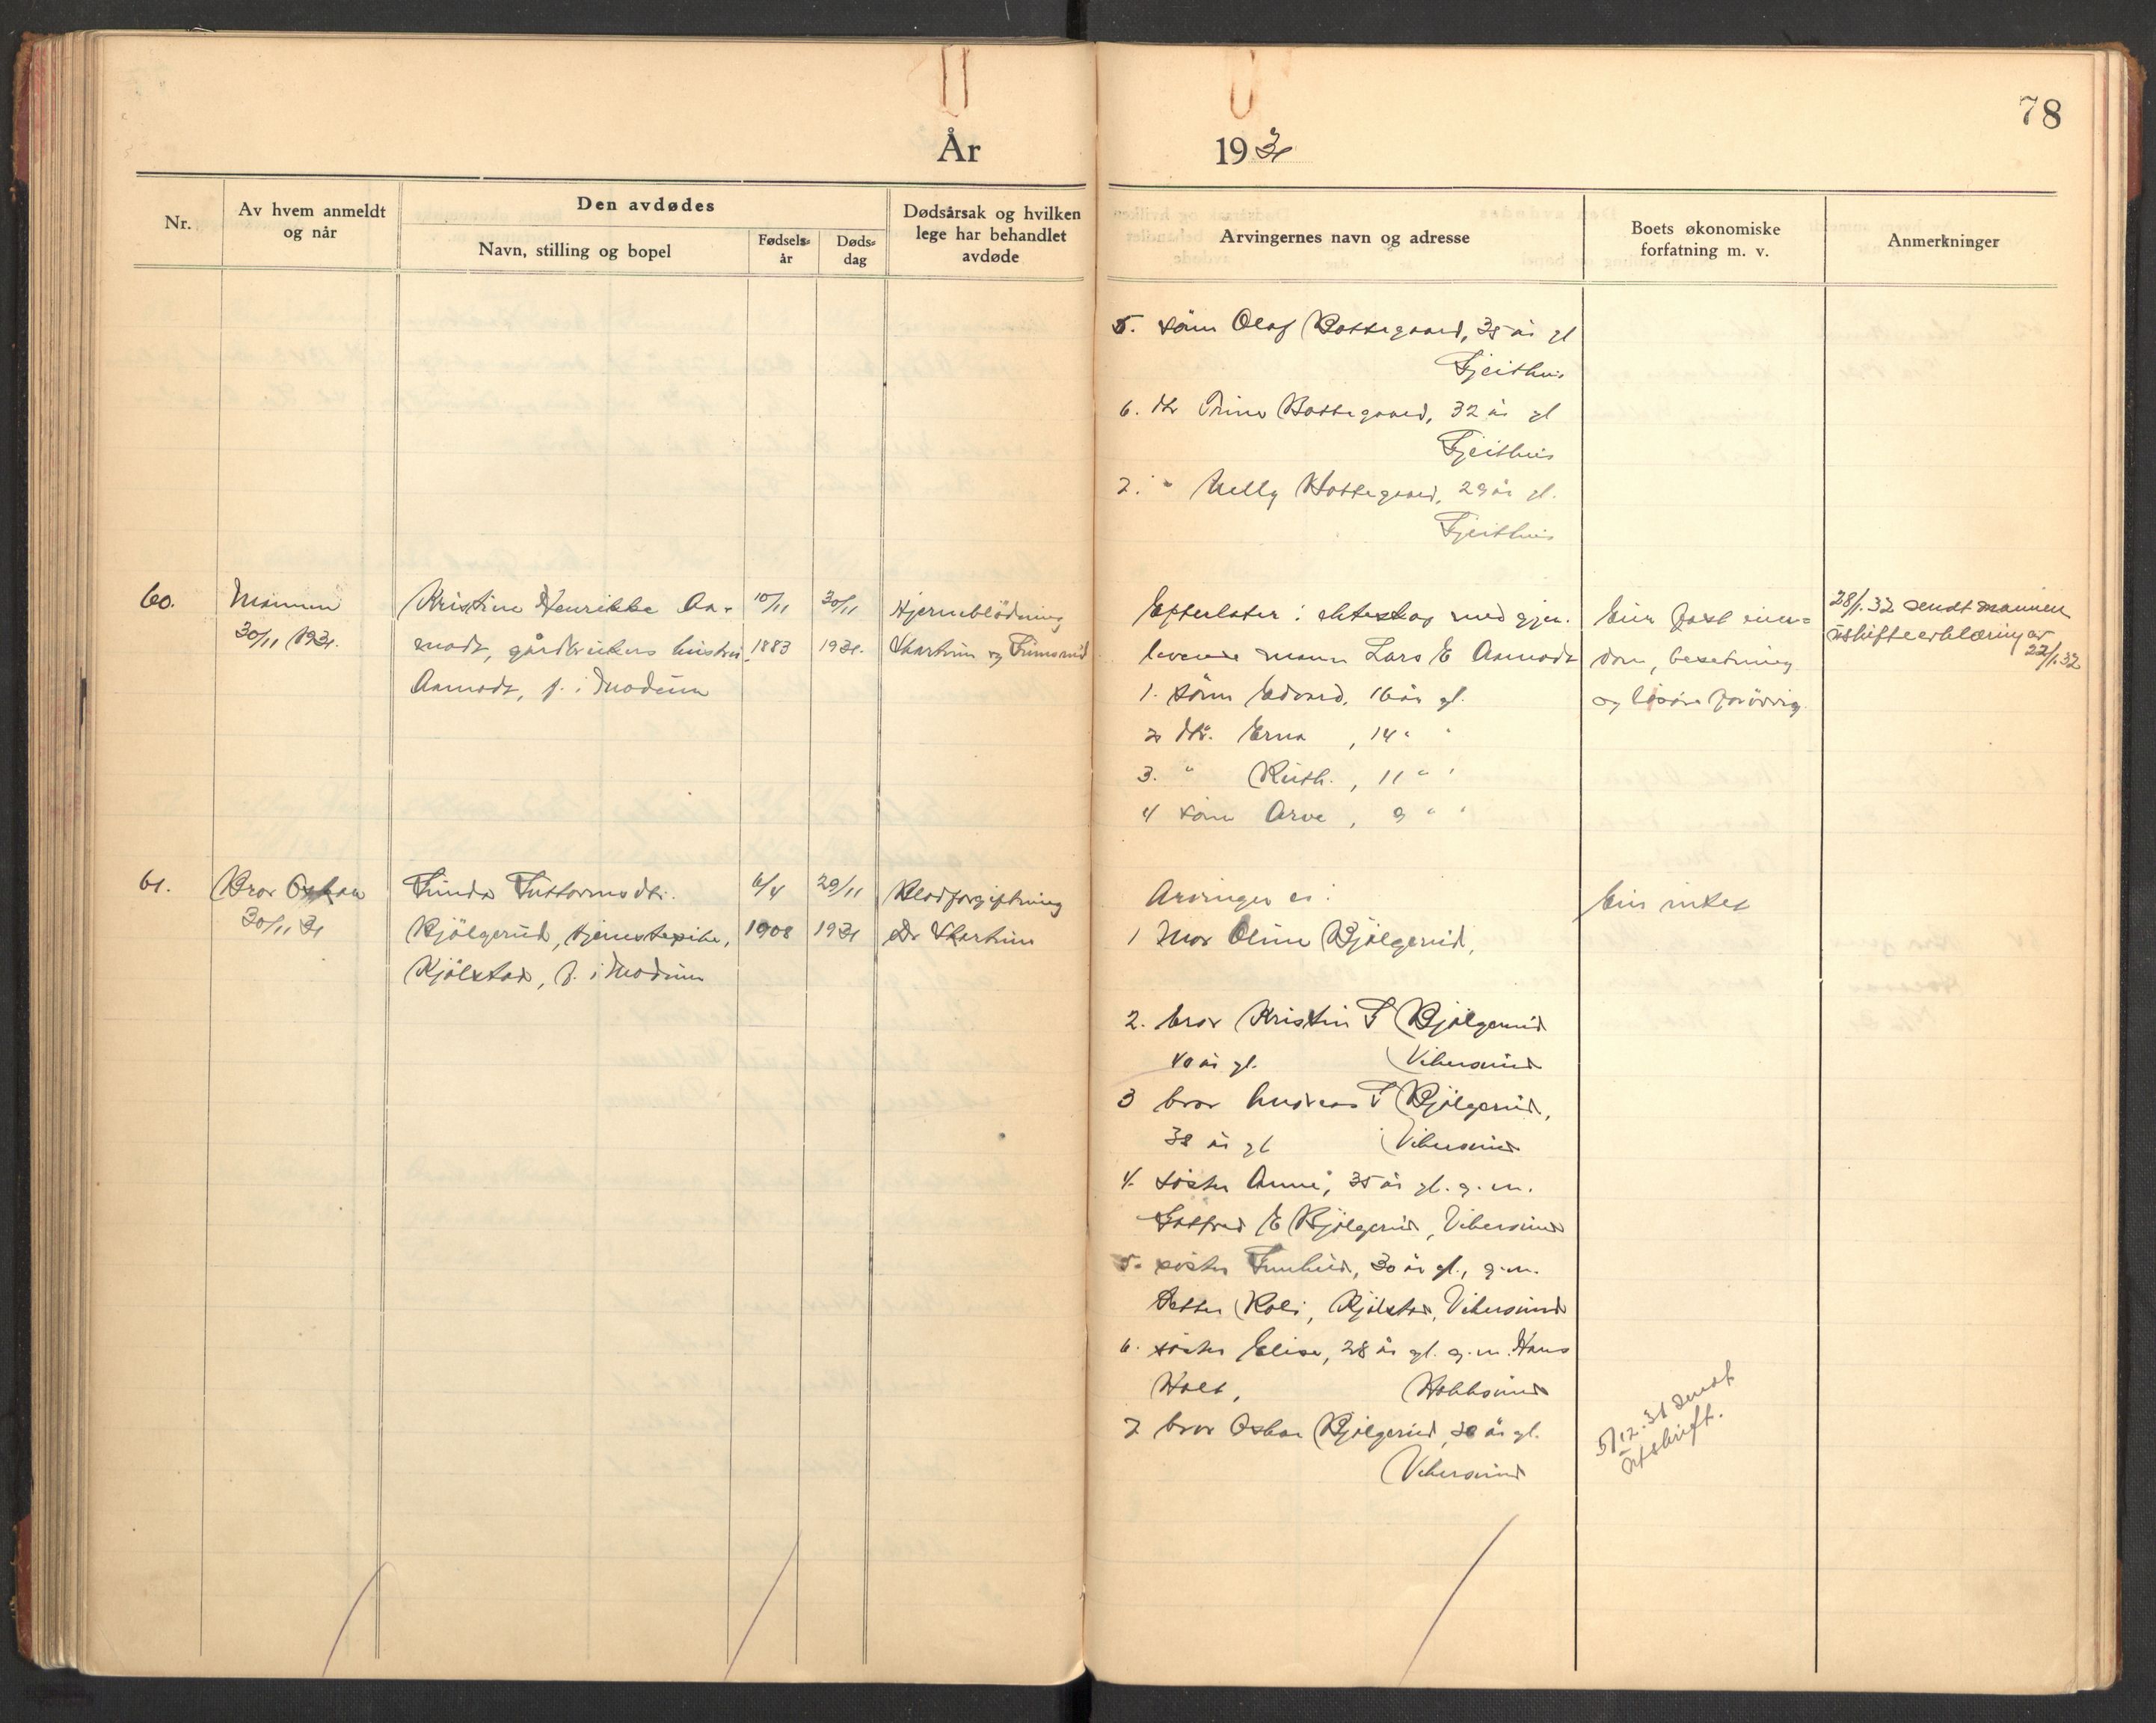 78
År 1931
Nr.
Av hvem anmeldt
og når
Den avdødes
Navn, stilling og bopel
Fødsels-
år
Døds-
dag
Dødsårsak og hvilken
lege har behandlet
avdøde
Arvingernes navn og adresse
Boets økonomiske
forfatning m. v.
Anmerkninger
5. sønn Olaf Bottegaard, 35 år gl
Gjeithus
6. dtr Bottegaard, 32 år gl
Gjeithus
7. " Nelly Bottegaard, 29 år gl.
Gjeithus
60.
Mannen
30/11 1931.
Kristine Henrikke Aa-
modt, gårdbrukers hustru,
Aamodt, f. i Modum
10/11
1883
30/11
1931.
Hjerneblödning
og
Efterlater i ekteskap med gjen-
levende mann Lars E Aamodt
1. sönn Edvard, 16 år gl.
2 dtr. Erna , 14 " "
3. " Ruth. , 11 " "
4 sönn Arve , 9 " "
Eier fast eien-
dom, besetning
og lösöre forövrig.
28/1.32 sendt mannen
uskifteerklæring av
22/1.32
61.
Bror Oskar
30/11 31
Guttormsdtr.
Bjölgerud, tjenestepike,
Kjölstad, f. i Modum
6/4
1908
29/11
1931
Blodforgiftning
Dr
Arvinger er:
1 Mor Oline Bjölgerud,
2. bror Kristian G Bjölgerud
40 år gl. Vikersund
3 bror Andreas G Bjölgerud,
38 år gl Vikersund
4. söster Anna, 35 år gl. g.m.
Gotfred E Bjölgerud, Vikersund
5. söster Gunhild, 30 år gl., g.m.
Petter Koli, Kjölstad, Vikersund
6. söster Elise, 28 år gl. g.m. Hans
Holt, Hokksund
7 bror Oskar Bjölgerud, år gl.
Vikersund
Eier intet
5/12.31 sendt
utskrift.